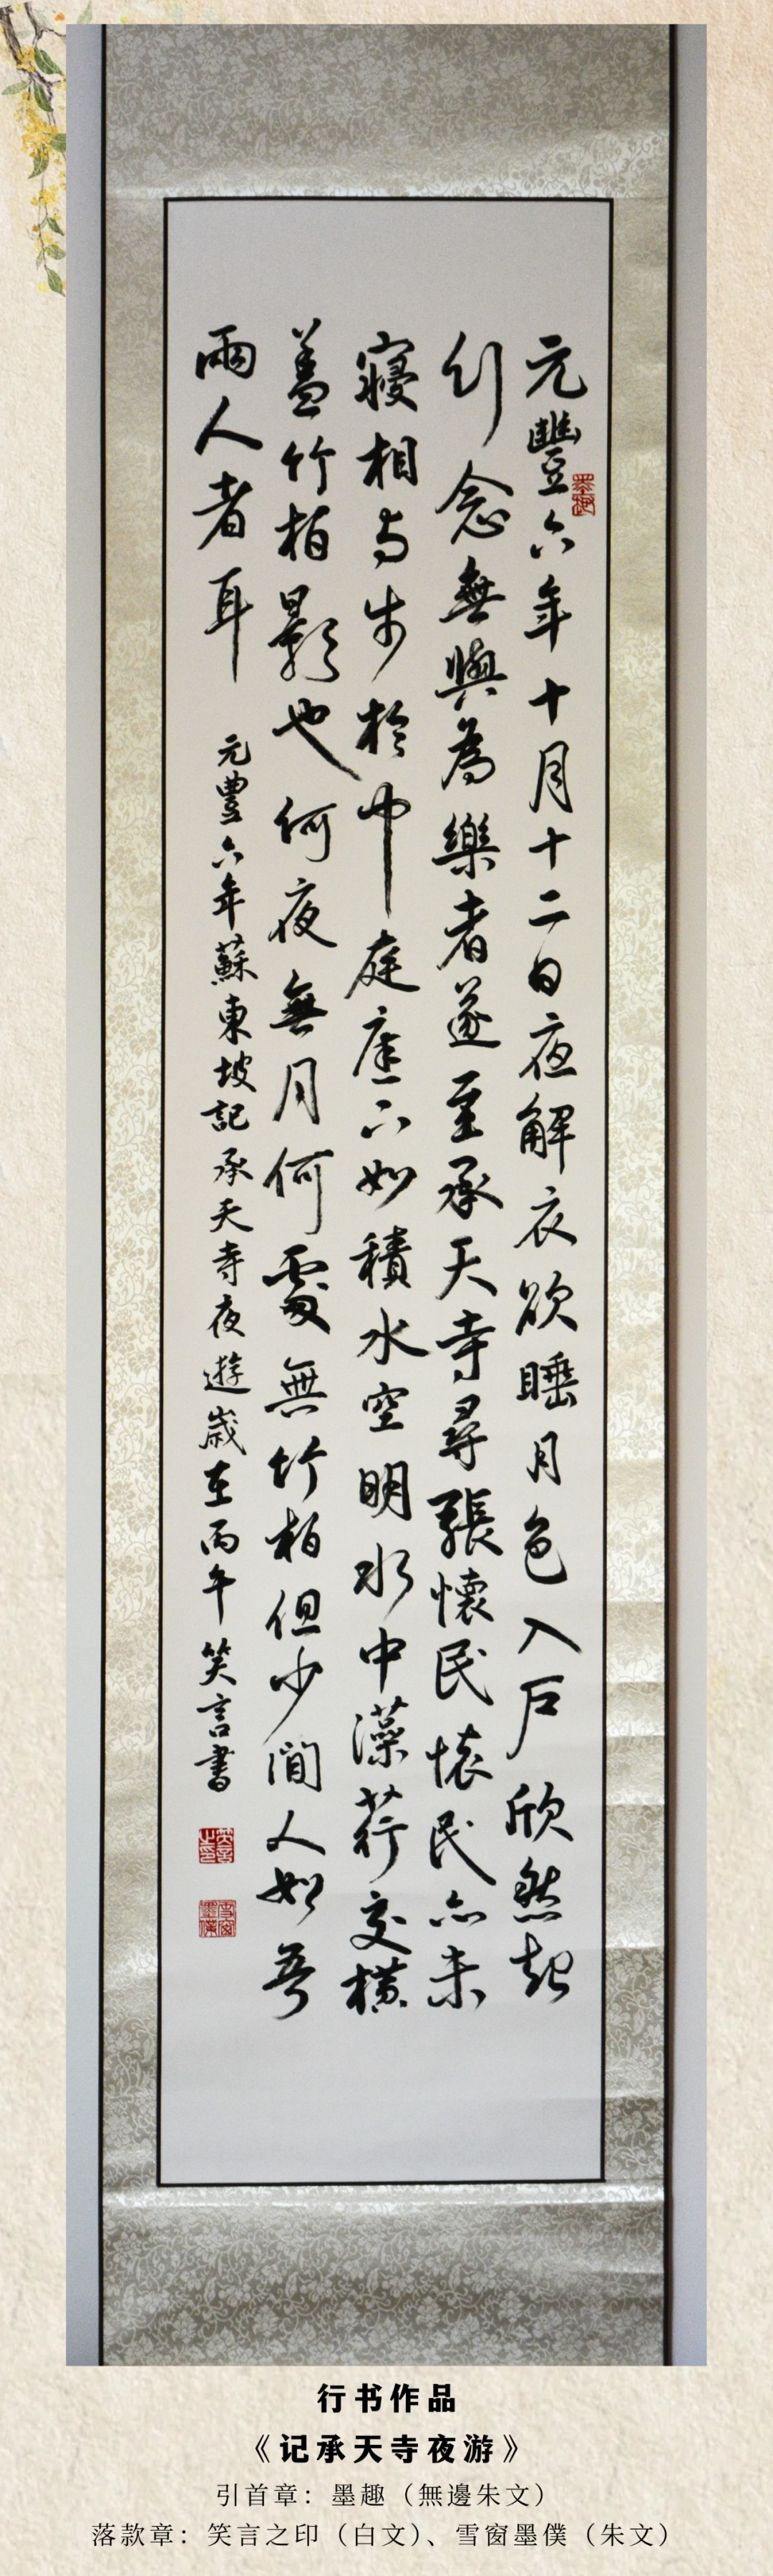 元豐六年十月十二日夜解衣欲睡月色入户欣然起
行念無與為樂者遂至承天寺尋張懷民懷民亦未
寢相与步於中庭庭下如積水空明水中藻荇交橫
蓋竹柏影也何夜無月何處無竹柏但少閒人如吾
兩人者耳
元豊六年蘇東坡記承天寺夜遊歲在丙午笑言書
墨趣
笑言之印
雪窗墨僕
行书作品
《记承天寺夜游》
引首章：墨趣（無邊朱文）
落款章：笑言之印（白文）、雪窗墨僕（朱文）